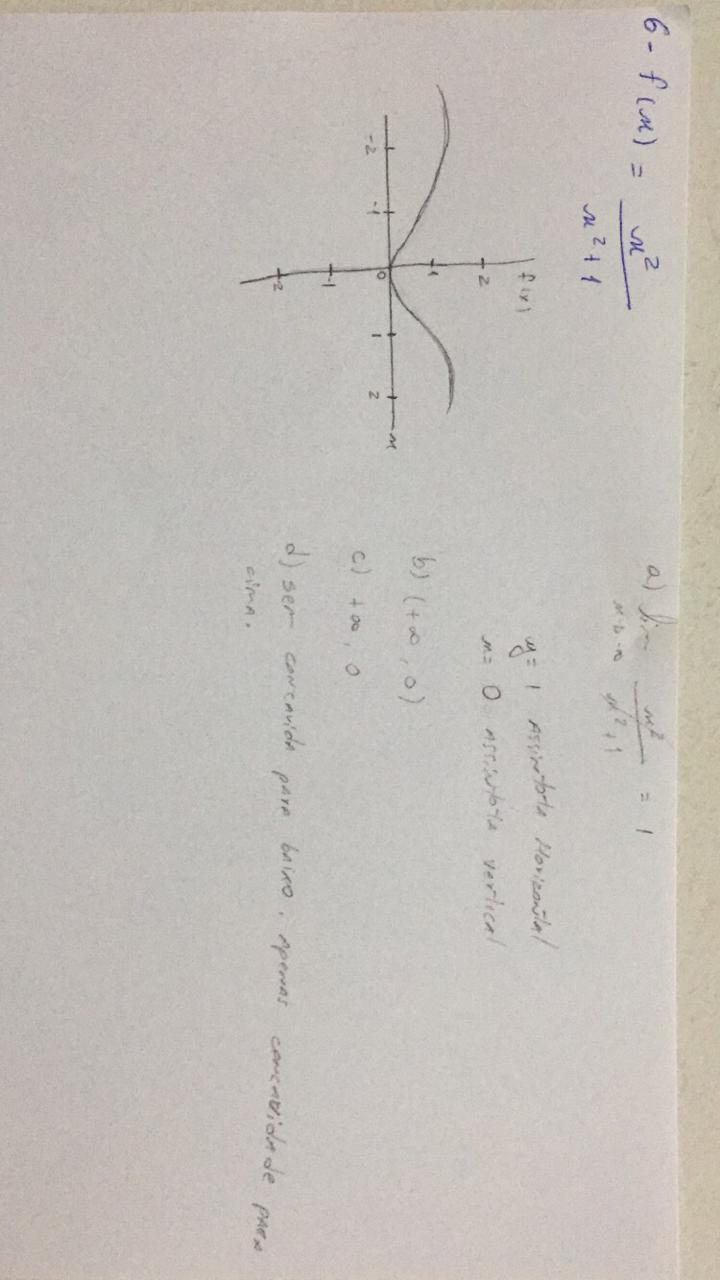 6 - f(x) = x²
x² + 1
f(x)
2
1
-2 -1 0 1 2 x
-1
-2
a) lim x² = 1
x→-∞ x² + 1
y = 1 Assintota Horizontal
x = 0 Assintota vertical
b) (+∞, 0)
c) +∞, 0
d) sem concavida para baixo, apenas concavidade para
cima.